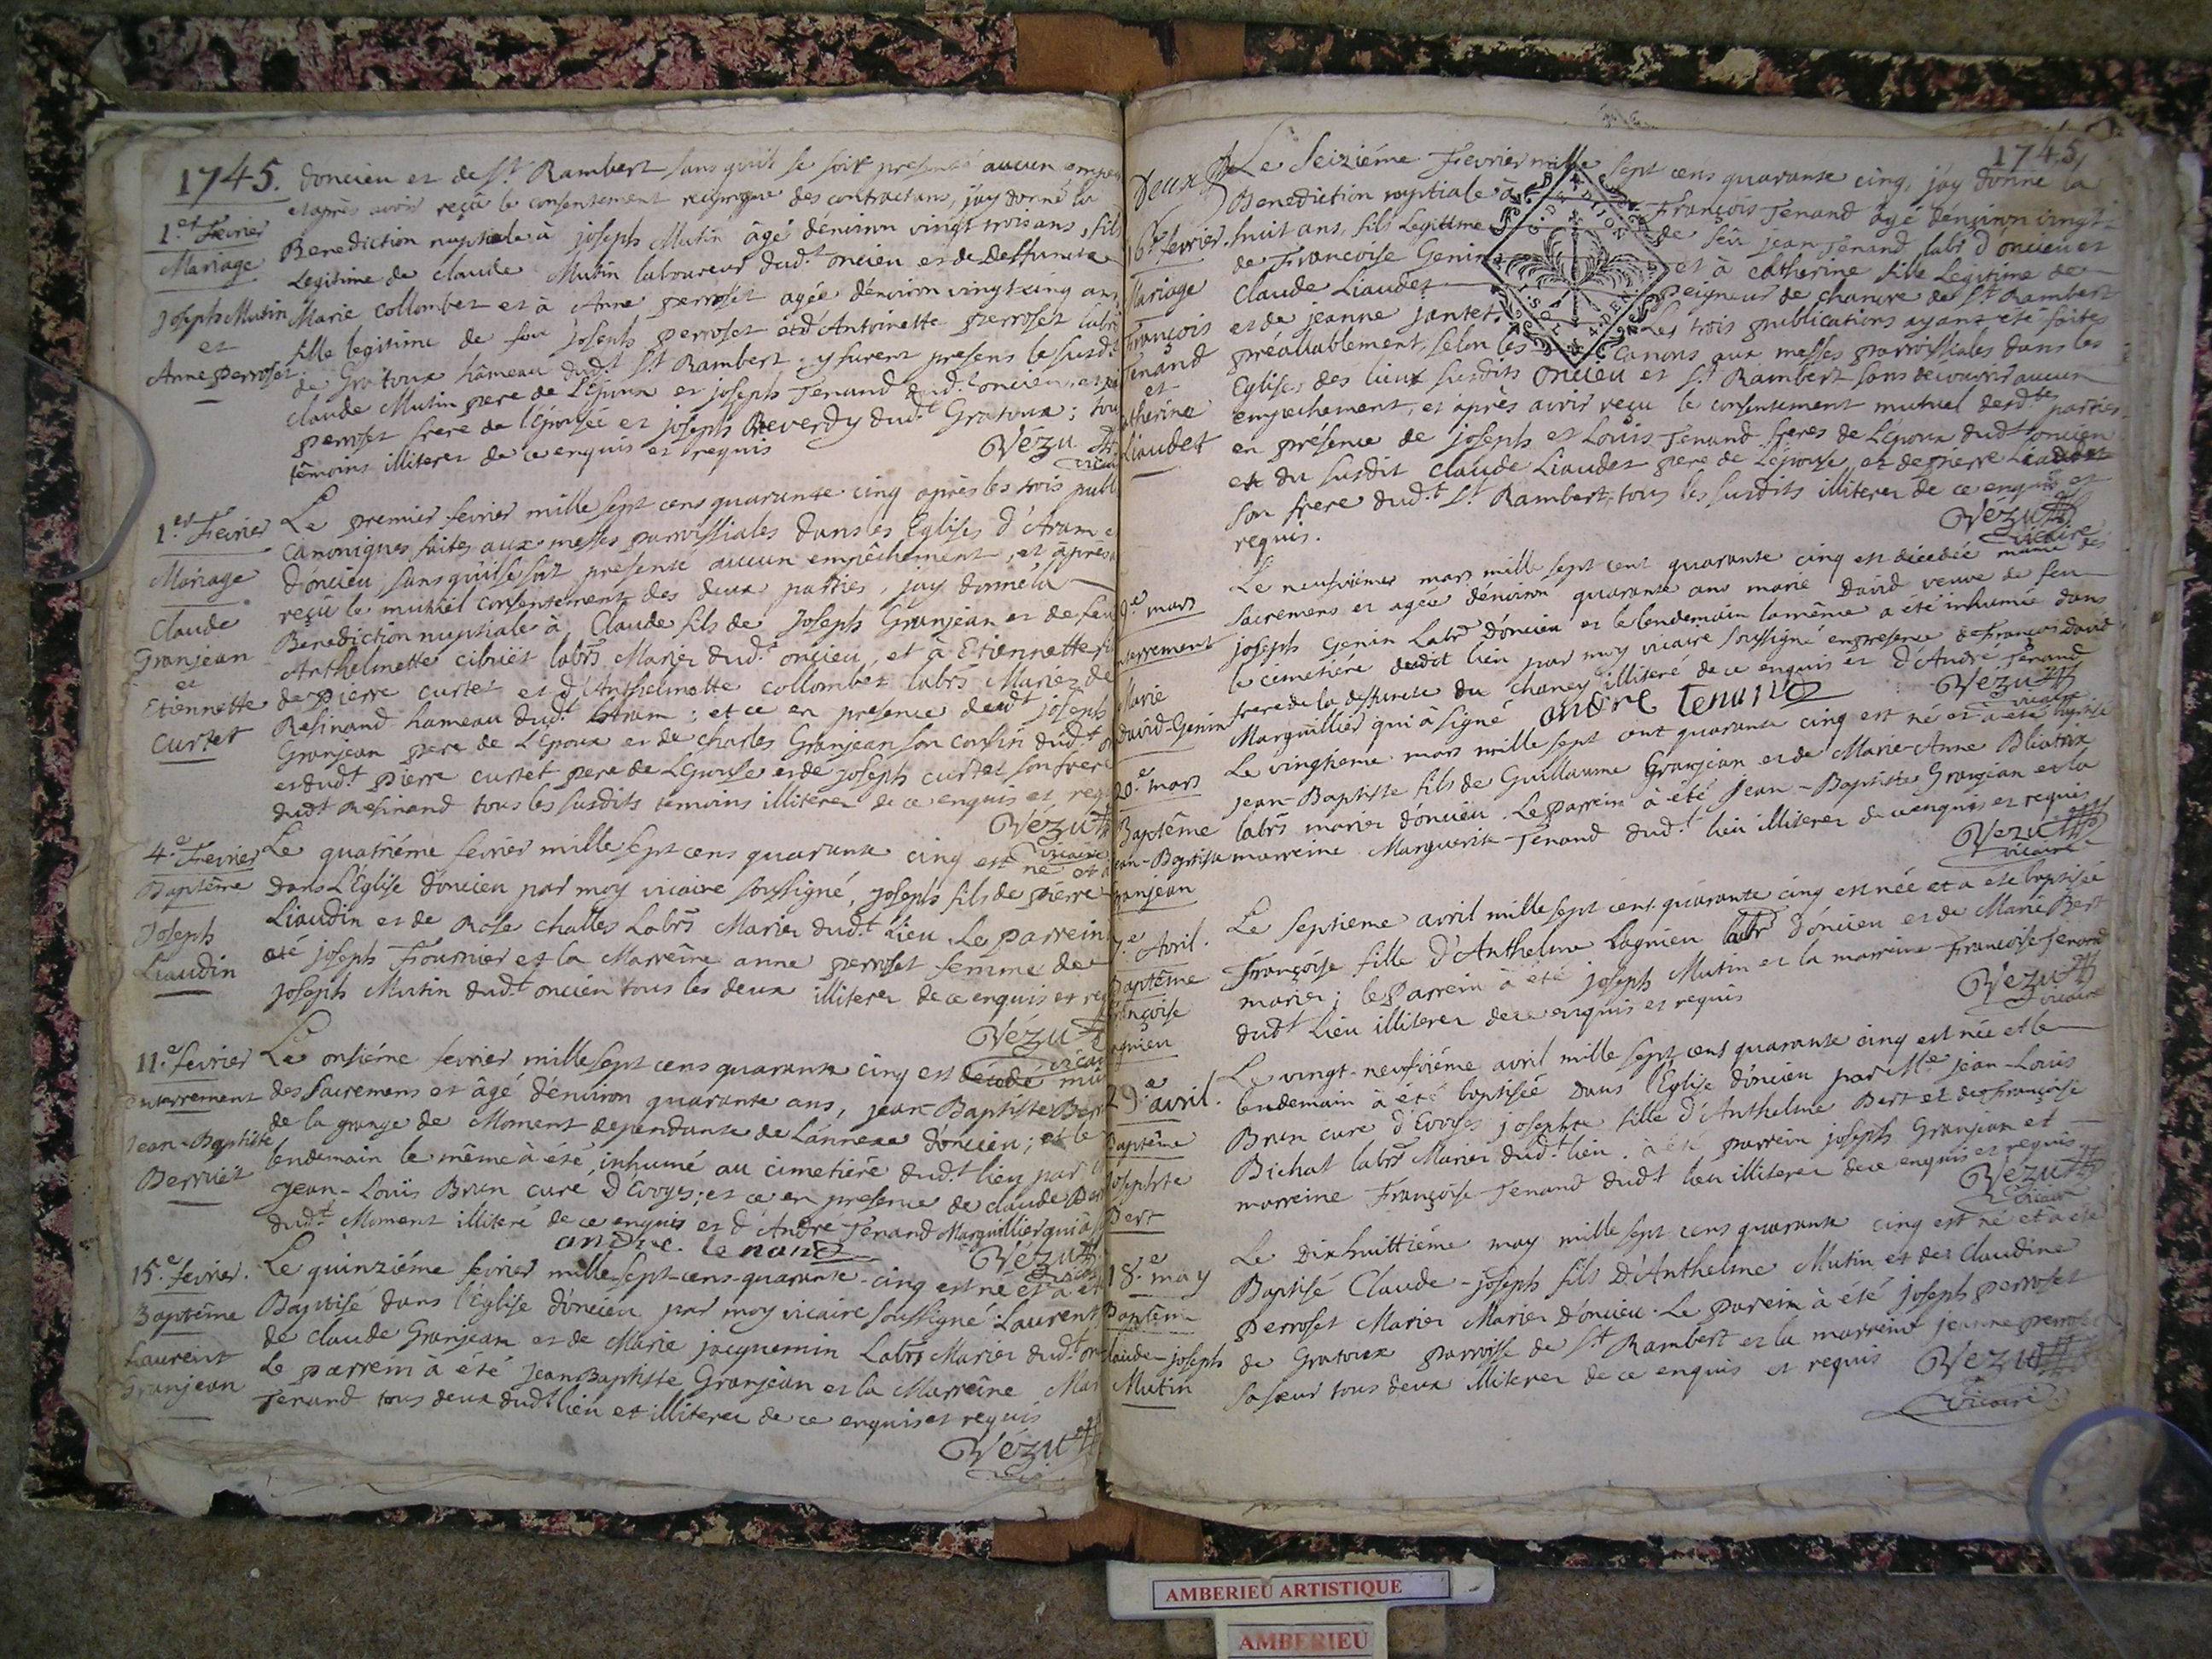 1745.
d'oncieu et de St Rambert sans qu'il se soit presenté aucun empe
et après avoir reçû le consentement reciproque des contractans, j'ay donné la
1.er Fevrier
Mariage
Joseph Mutin
et
Anne perroset
Benediction nuptiale à joseph Mutin âgé d'environ vingt trois ans, fils
Legitime de claude Mutin laboureur dud.t oncieu et de Deffuncte
Marie collombet et à Anne perroset agée d'environ vingt-cinq ans
fille legitime de feu joseph perroset et d'Antoinette perroset labrs
de Gratoux hâmeau dud.t St Rambert. y furent presens le susd.t
claude Mutin pere de L'Epoux et joseph Tenand dud.t oncieu, et
perroset frere de l'épousée et joseph Reverdy dud.t Gratoux; tou
têmoins illiterez de ce enquis et requis
Vézu
vicai
1.er Fevrier
Mariage
Claude
Granjean
et
Etiennette
Curtet
Le premier fevrier mille sept cens quarante cinq après les trois publ
canoniques faites aux messes parroissiales dans les Eglises d'Aram e
d'oncieu sans qu'il se soit presenté aucun empêchement, et après a
reçû le mutuel consentement des deux parties, j'ay donné la
Benediction nuptiale à Claude fils de Joseph Granjean et de feu
Anthelmette cibuët labrs Mariez dud.t oncieu, et à Etiennette fi
de pierre curtet et d'Anthelmette collombet labrs Mariez de
Resinand hameau dud.t Aram; et ce en presence dud.t joseph
Granjean pere de L'Epoux et de charles Granjean son cousin dud.t
et dud.t pierre curtet pere de L'Epouse et de joseph curtet son frere
dud.t Resinand tous les susdits temoins illiterez de ce enquis et req
Vézu
vicaire
4.e Fevrier
Baptême
Joseph
Liaudin
Le quatriéme fevrier mille sept cens quarante cinq est né et a
dans L'Eglise d'oncieu par moy vicaire soussigné, joseph fils de pierre
Liaudin et de Rose challes Labrs Mariez dud.t Lieu. Le parrein
été joseph Fournier et la Marreine anne perroset femme de
joseph Mutin dud.t oncieu tous les deux illiterez de ce enquis et re
Vézu
vicai
11.e fevrier
enterrement
Jean-Baptiste
Berruët
Le onsiéme fevrier mille sept cens quarante cinq est décédé mu
des sacremens et âgé d'environ quarante ans, jean-Baptiste Berr
de la grange de Moment dependante de L'annexe d'oncieu; et le
lendemain le même à été inhumé au cimetiére dud.t lieu par
jean-Louis Brun curé d'Evoges; et ce en presence de claude Berr
dud.t Moment illiteré de ce enquis et d'André Tenand Marguillier qui à
andre tenand
Vézu
vicai
15.e fevrier.
Baptême
Laurent
Granjean
Le quinziéme fevrier mille-sept-cens-quarante-cinq est né et à ét
Baptisé dans l'Eglise d'oncieu par moy vicaire soussigné Laurent
de claude Granjean et de Marie jacquemin Labrs Mariez dud.t on
Le parrein à été Jean Baptiste Granjean et la Marreine Mar
Tenand tous deux dud.t lieu et illiterez de ce enquis et requis
Vézu
Deux
1745,
16e fevrier.
Mariage
François
Tenand
et
atherine
Liaudet
Le Seiziéme Fevrier mille sept cens quarante cinq, j'ay donné la
Benediction nuptiale à François Tenand âgé d'environ vingt-
huit ans, fils Legittime de feu jean Tenand labr d'oncieu et
de Francoise Genin et à catherine fille Legitime de
Claude Liaudet peigneur de chanvre de St Rambert
et de jeanne jantet. Les trois publications ayant été faites
préalablement, selon les canons aux messes parroissiales dans les
Eglises des lieux susdits oncieu et St Rambert sans decouvrir aucun
empechement, et après avoir reçu le consentement mutuel desd.tes parties
en présence de joseph et Louis Tenand freres de L'époux dud.t oncieu
et du susdit claude Liaudet pere de L'épouse, et de pierre Liaudet
son frere dud.t St Rambert, tous les susdits illiterez de ce enquis et
requis.
Vezu
vicaire
9e mars
nterrement
Marie
David-Genin
Le neufviémes mars mille sept cent quarante cinq est décedée munie des
sacremens et agée d'environ quarante ans marie David veuve de feu
joseph Genin Labr d'oncieu et le lendemain la même a été inhumée dans
le cimetiére dudit lieu par moy vicaire soussigné en presence de François David
frere de la deffuncte du chaney illiteré de ce enquis et d'André Tenand
Marguillier qui à signé andre tenand
Vezu
vicaire
20.e mars
Baptême
ean-Baptiste
ranjean
Le vingtieme mars mille sept cent quarante cinq est né et à été baptisé
jean-Baptiste fils de Guillaume Granjean et de Marie-Anne Bliatrix
labrs mariez d'oncieu. Le parrein à été jean-Baptiste Granjean et la
marreine Marguerite Tenand dud.t lieu illiterez de ce enquis et requis
Vezu
vicaire
7.e Avril.
Baptême
rançoise
agnieu
Le septieme avril mille sept cens quarante cinq est née et a été baptisée
Françoise fille d'Anthelme Lagnieu labr d'oncieu et de Marie Bert
mariez; le parrein à été joseph Mutin et la marreine Francoise Tenand
dud.t Lieu illiterez de ce enquis et requis
Vezu
vicaire
29.e avril.
Baptême
josephte
Bert
Le vingt-neufviéme avril mille sept cens quarante cinq est née et le
lendemain à été baptisée dans l'Eglise d'oncieu par M.e jean-Louis
Brun curé d'Evoges josephte fille d'Anthelme Bert et de françoise
Bichat labrs Mariez dud.t lieu. à été parrein joseph Granjean et
marreine Françoise Tenand dud.t lieu illiterez de ce enquis et requis
Vezu
vicaire
18.e may
Baptême
laude-joseph
Mutin
Le Dixhuittiéme may mille sept cens quarante cinq est né et à été
Baptisé Claude-joseph fils D'Anthelme Mutin et de Claudine
perroset Mariez Mariez d'oncieu. Le parein à été joseph perroset
de Gratoux parroisse de St Rambert et la marreine jeanne perroset
sa sœur tous deux illiterez de ce enquis et requis
Vezu
vicaire
AMBERIEU ARTISTIQUE
AMBERIEU